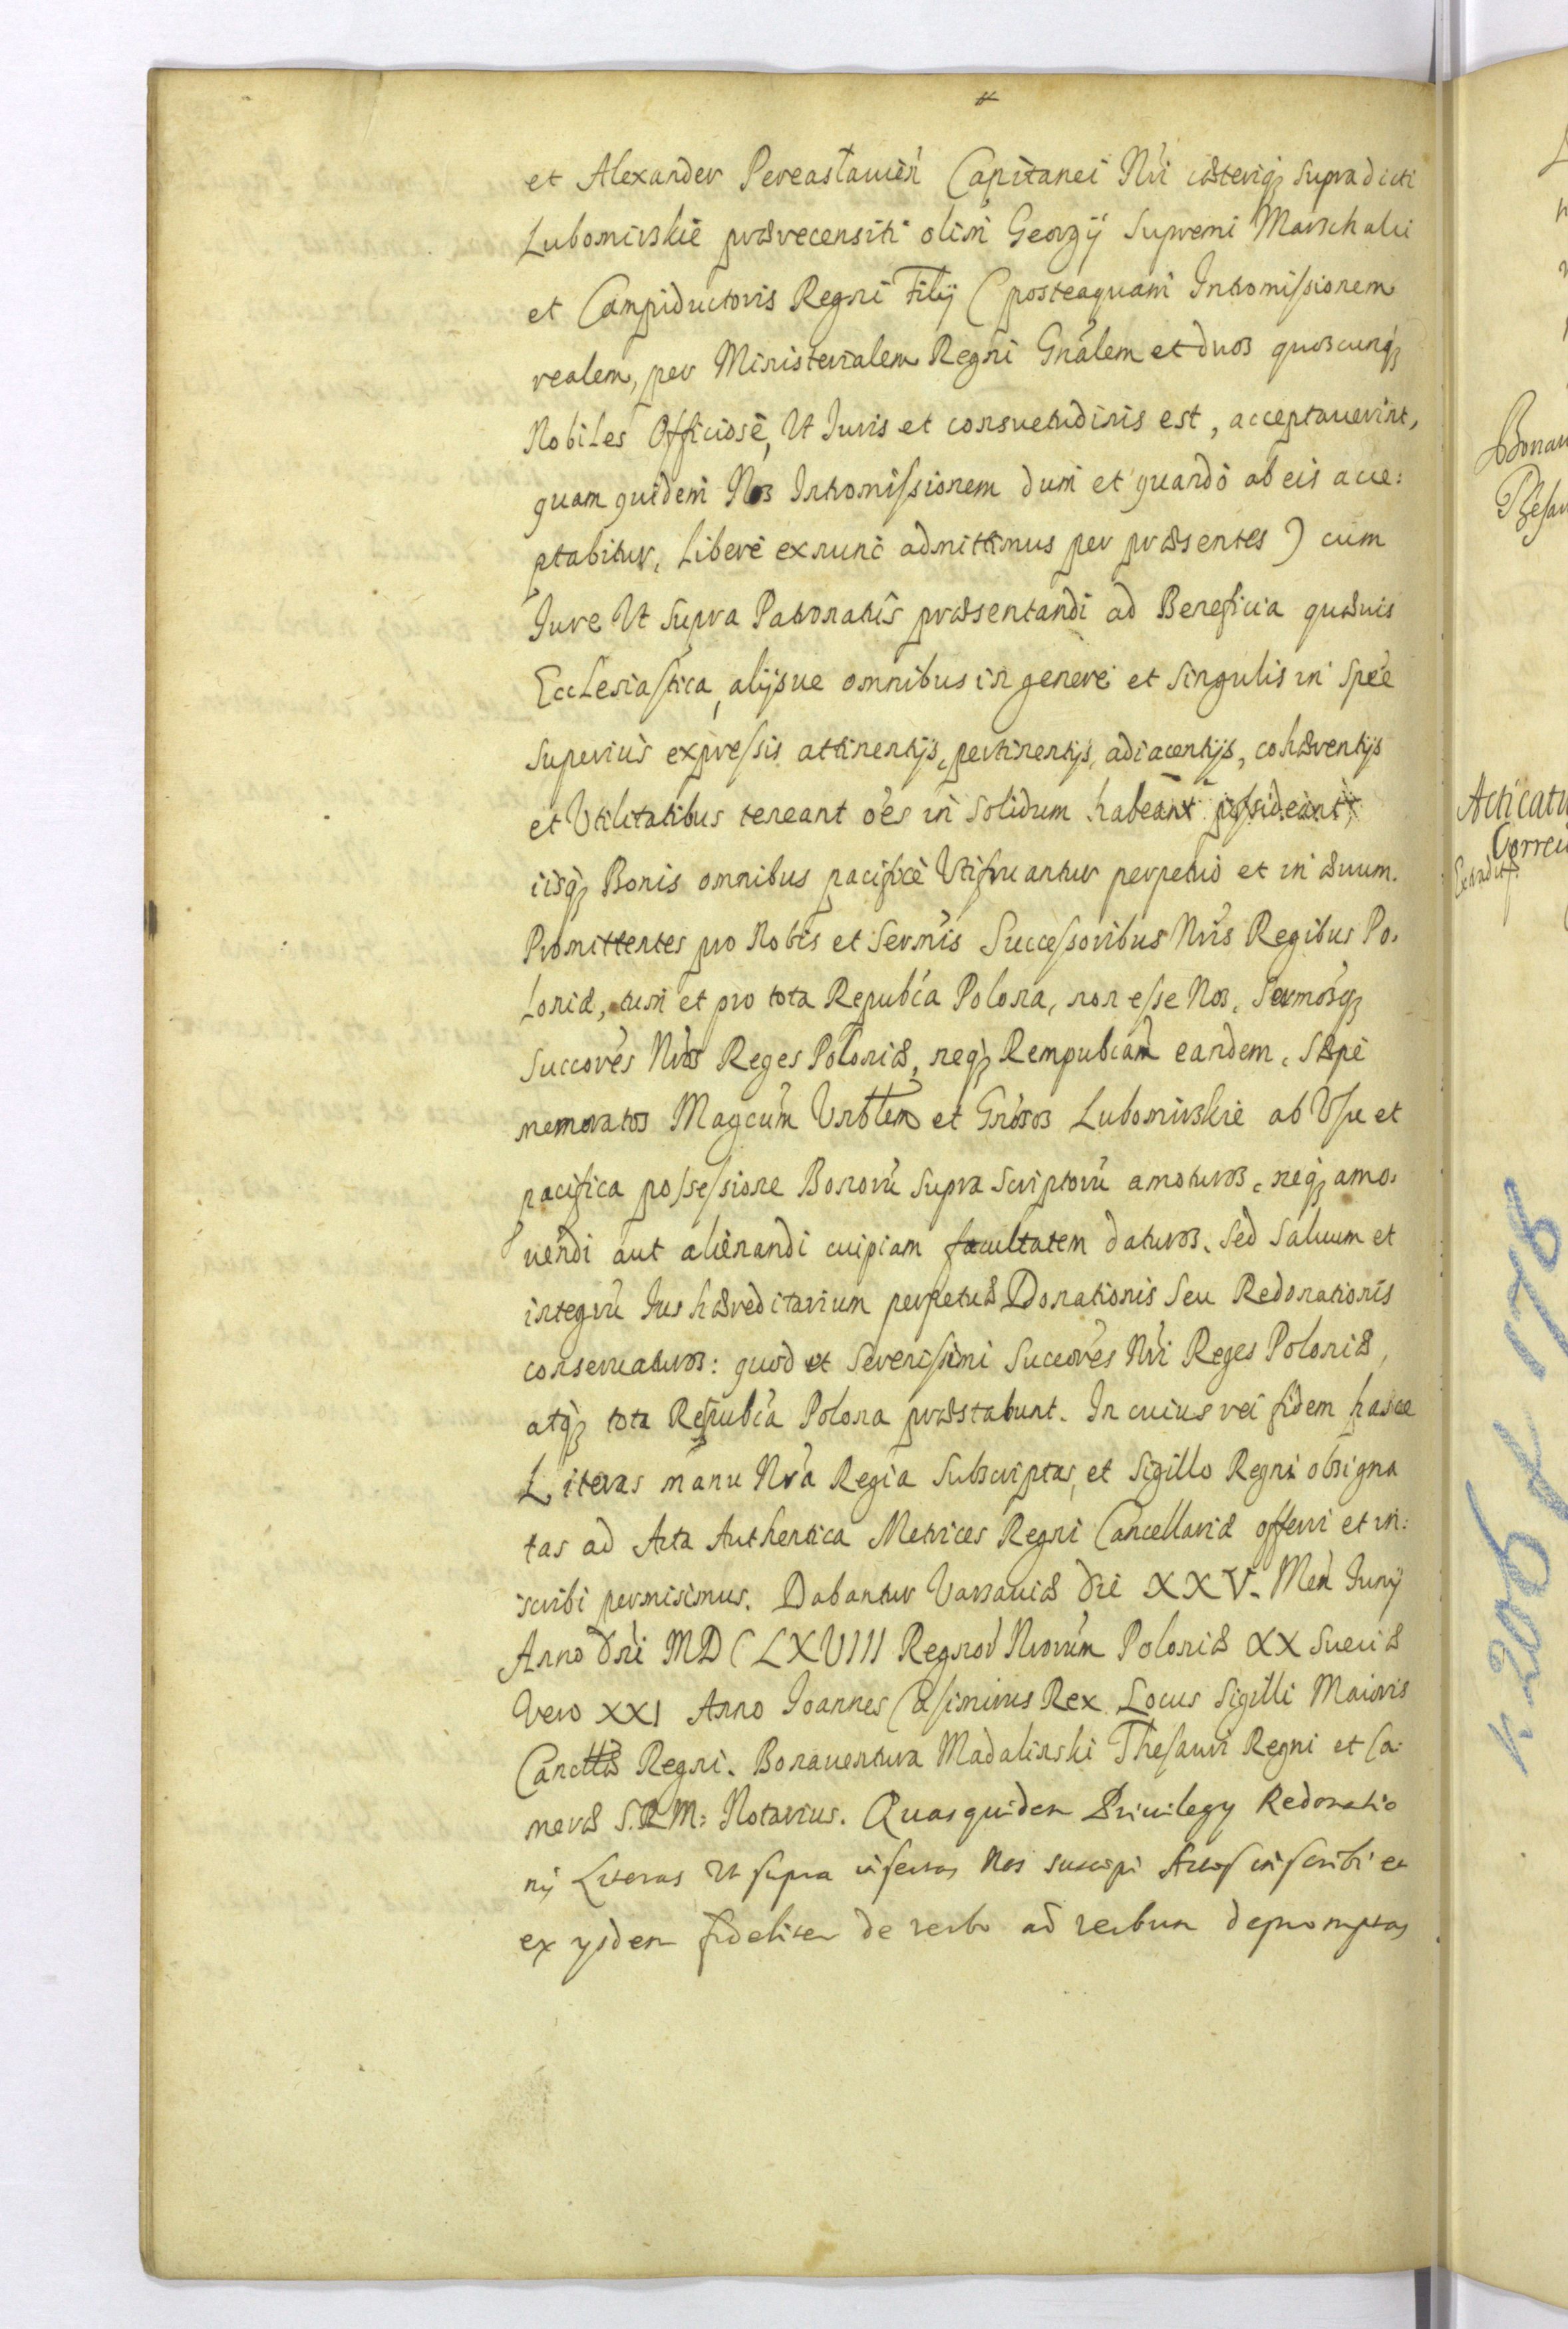 et Alexander Pereaslauień Capitanei Nri cæteriq; supradicti
Lubomirskie prærecensiti olim Georgij Supremi Marschalci
et Campiductoris Regni Filij (posteaquam Intromissionem
realem, per Ministerialem Regni Gnalem et duos quoscunq;
Nobiles Officiosè, Ut Iuris et consuetudinis est, acceptauerint,
quam quidem Nos Intromissionem dum et quando ab eis acce:
ptabitur, liberè exnunc admittimus per præsentes) cum
Iure Ut supra Patronatûs præsentandi ad Beneficia quæuis
Ecclesiastica, alijsue omnibus in genere et singulis in spēe
superius expressis attinentijs, pertinentijs, adiacentijs, cohærentijs
et Utilitatibus teneant oēs in solidum habeant possideant,
iisq; Bonis omnibus pacificè Utifruantur perpetuò et in æuum.
Promittentes pro Nobis et Sermis Successoribus Nris Regibus Po,
loniæ, tum et pro tota Republca Polona, non esse Nos, Sermosq;
Succores Nros Reges Poloniæ, neq; Rempublcam eandem, sæpe
memoratos Magcum Urblem et Gnosos Lubomirskie ab Usu et
pacifica possessione Bonorū supra scriptorū amoturos, neq; amo,
uendi aut alienandi cuipiam facultatem daturos, sed saluum et
integrū Ius hæreditarium perpetuæ Donationis seu Redonationis
conseruaturos: quod et Serenissimi Succores Nri Reges Poloniæ,
atq; tota Respublca Polona præstabunt. In cuius rei fidem hasce
Literas manu Nra Regia Subscriptas, et Sigillo Regni obsigna
tas ad Acta Authentica Metrices Regni Cancellariæ offerri et in:
scribi permisimus. Dabantur Varsauiæ die XXV. Men Iunij
Anno Dni MDCLXVIII Regnor Nrorum Poloniæ XX Sueciæ
Vero XXI Anno Joannes Casimirus Rex Locus Sigilli Maioris
Cancllæ Regni. Bonauentura Madalinski Thesauri Regni et Ca
meræ S.R.M: Notarius. Quas quidem Priuilegy Redonatio
nis Literas Ut supra insertas Nos suscipi Actis inscribi et
ex ysdem fideliter de verbo ad verbum depromptas
Acticatu
k. 206 v 178